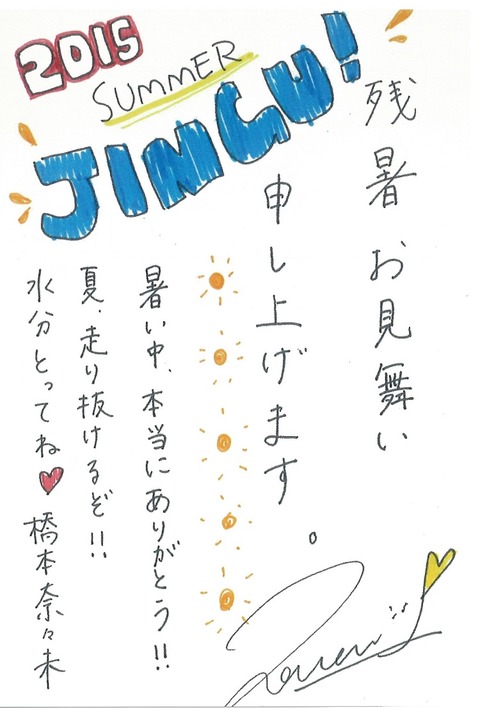 2015
SUMMER
JINGU!
残暑お見舞い
申し上げます。
暑い中、本当にありがとう!!
夏、走り抜けるぞ!!
水分とってね♥橋本奈々未